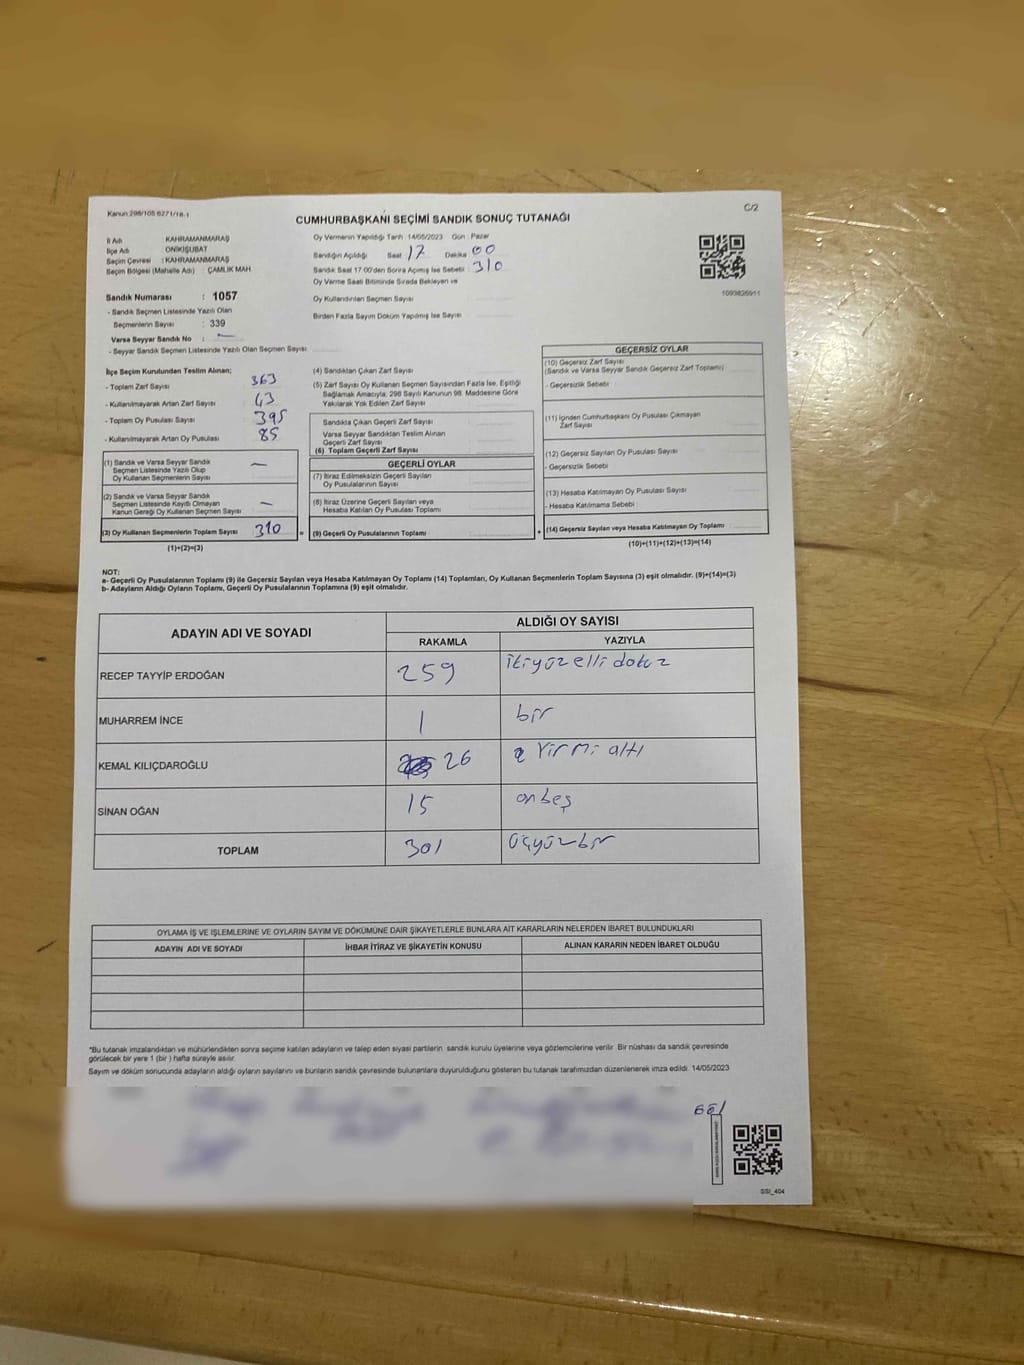 Kanun:298/105 6271/18.1
C/2
CUMHURBAŞKANI SEÇİMİ SANDIK SONUÇ TUTANAĞI
İl Adı : KAHRAMANMARAŞ
İlçe Adı : ONİKİŞUBAT
Seçim Çevresi : KAHRAMANMARAŞ
Seçim Bölgesi (Mahalle Adı) : ÇAMLIK MAH.
Oy Vermenin Yapıldığı Tarih :14/05/2023 Gün : Pazar
Sandığın Açıldığı Saat 17 Dakika 00
Sandık Saat 17:00'den Sonra Açılmış İse Sebebi : 310
Oy Verme Saati Bitiminde Sırada Bekleyen ve
Oy Kullandırılan Seçmen Sayısı
Birden Fazla Sayım Döküm Yapılmış İse Sayısı
1093826911
Sandık Numarası : 1057
- Sandık Seçmen Listesinde Yazılı Olan
Seçmenlerin Sayısı : 339
Varsa Seyyar Sandık No : -
- Seyyar Sandık Seçmen Listesinde Yazılı Olan Seçmen Sayısı
İlçe Seçim Kurulundan Teslim Alınan;
- Toplam Zarf Sayısı 363
- Kullanılmayarak Artan Zarf Sayısı 43
- Toplam Oy Pusulası Sayısı 395
- Kullanılmayarak Artan Oy Pusulası 85
(1) Sandık ve Varsa Seyyar Sandık
Seçmen Listesinde Yazılı Olup
Oy Kullanan Seçmenlerin Sayısı -
(2) Sandık ve Varsa Seyyar Sandık
Seçmen Listesinde Kayıtlı Olmayan
Kanun Gereği Oy Kullanan Seçmen Sayısı -
(3) Oy Kullanan Seçmenlerin Toplam Sayısı 310 =
(1)+(2)=(3)
(4) Sandıktan Çıkan Zarf Sayısı
(5) Zarf Sayısı Oy Kullanan Seçmen Sayısından Fazla İse, Eşitliği
Sağlamak Amacıyla, 298 Sayılı Kanunun 98. Maddesine Göre
Yakılarak Yok Edilen Zarf Sayısı
Sandıkta Çıkan Geçerli Zarf Sayısı
Varsa Seyyar Sandıktan Teslim Alınan
Geçerli Zarf Sayısı
(6) Toplam Geçerli Zarf Sayısı
GEÇERLİ OYLAR
(7) İtiraz Edilmeksizin Geçerli Sayılan
Oy Pusulalarının Sayısı
(8) İtiraz Üzerine Geçerli Sayılan veya
Hesaba Katılan Oy Pusulası Toplamı
(9) Geçerli Oy Pusulalarının Toplamı +
GEÇERSİZ OYLAR
(10) Geçersiz Zarf Sayısı
(Sandık ve Varsa Seyyar Sandık Geçersiz Zarf Toplamı)
- Geçersizlik Sebebi
(11) İçinden Cumhurbaşkanı Oy Pusulası Çıkmayan
Zarf Sayısı
(12) Geçersiz Sayılan Oy Pusulası Sayısı
- Geçersizlik Sebebi
(13) Hesaba Katılmayan Oy Pusulası Sayısı
- Hesaba Katılmama Sebebi
(14) Geçersiz Sayılan veya Hesaba Katılmayan Oy Toplamı
(10)+(11)+(12)+(13)=(14)
NOT:
a- Geçerli Oy Pusulalarının Toplamı (9) ile Geçersiz Sayılan veya Hesaba Katılmayan Oy Toplamı (14) Toplamları, Oy Kullanan Seçmenlerin Toplam Sayısına (3) eşit olmalıdır. (9)+(14)=(3)
b- Adayların Aldığı Oyların Toplamı, Geçerli Oy Pusulalarının Toplamına (9) eşit olmalıdır.
ADAYIN ADI VE SOYADI
ALDIĞI OY SAYISI
RAKAMLA YAZIYLA
RECEP TAYYİP ERDOĞAN 259 ikiyüzellidokuz
MUHARREM İNCE 1 bir
KEMAL KILIÇDAROĞLU 26 Yirmi altı
SİNAN OĞAN 15 onbeş
TOPLAM 301 üçyüzbir
OYLAMA İŞ VE İŞLEMLERİNE VE OYLARIN SAYIM VE DÖKÜMÜNE DAİR ŞİKAYETLERLE BUNLARA AİT KARARLARIN NELERDEN İBARET BULUNDUKLARI
ADAYIN ADI VE SOYADI
İHBAR İTİRAZ VE ŞİKAYETİN KONUSU
ALINAN KARARIN NEDEN İBARET OLDUĞU
*Bu tutanak imzalandıktan ve mühürlendikten sonra seçime katılan adayların ve talep eden siyasi partilerin, sandık kurulu üyelerine veya gözlemcilerine verilir. Bir nüshası da sandık çevresinde
görülecek bir yere 1 (bir ) hafta süreyle asılır.
Sayım ve döküm sonucunda adayların aldığı oyların sayılarını ve bunların sandık çevresinde bulunanlara duyurulduğunu gösteren bu tutanak tarafımızdan düzenlenerek imza edildi. 14/05/2023
SSI_404